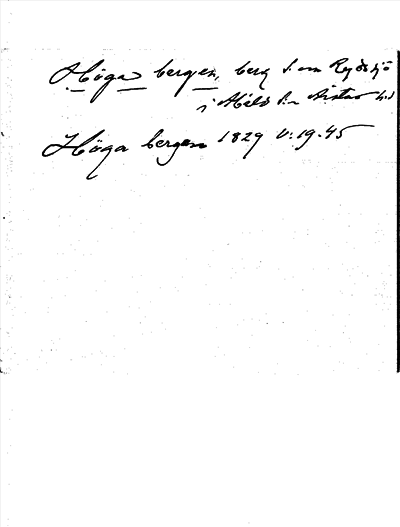 Höga bergen, berg S. om Rydsjö
i
Höga bergen 1829 V:19.45